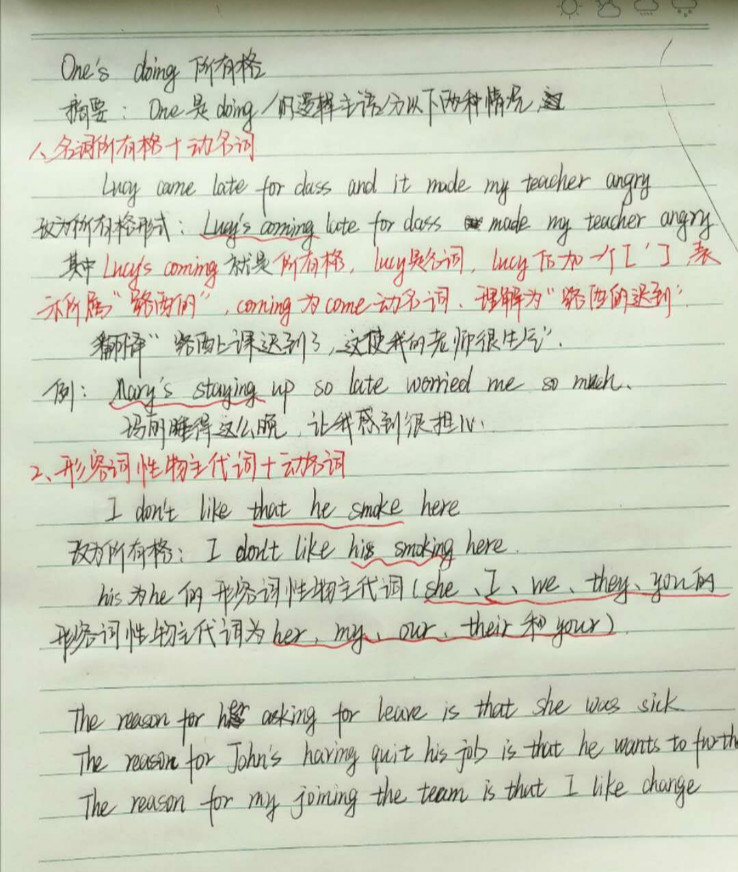 One's doing 所有格
摘要：One是doing的逻辑主语分以下两种情况
1、名词所有格+动名词
Lucy came late for class and it made my teacher angry
改为所有格形式：Lucy's coming late for class made my teacher angry
其中Lucy's coming 就是所有格，lucy是名词，lucy后加一个[ ' ] 表
示所属"路西的"，coming为come动名词、理解为"路西的迟到"
翻译"路西上课迟到了，这使我的老师很生气".
例：Mary's staying up so late worried me so much.
玛丽睡得这么晚，让我感到很担心.
2、形容词性物主代词+动名词
I don't like that he smoke here
改为所有格：I don't like his smoking here.
his为he的形容词性物主代词(she、I、we、they、you的
形容词性物主代词为her、my、our、their和your)
The reason for asking for leave is that she was sick
The reason for John's having quit his job is that he wants to furth
The reason for my joining the team is that I like change